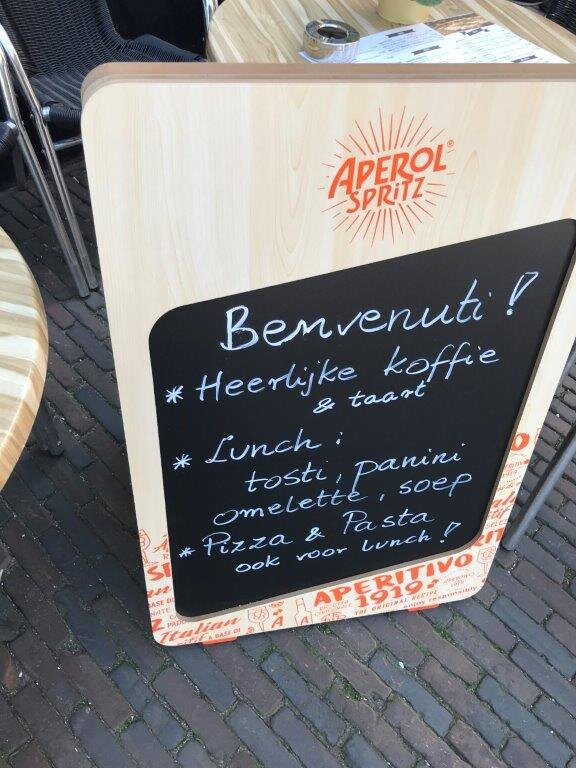 APEROL®
SPRITZ
Benvenuti!
* Heerlijke koffie
& taart
* Lunch:
tosti, panini
omelette, soep
* Pizza & Pasta
ook voor lunch!
APERITIVO
1919
THE ORIGINAL RECIPE
enjoy responsibly
Italian
A BASE DI